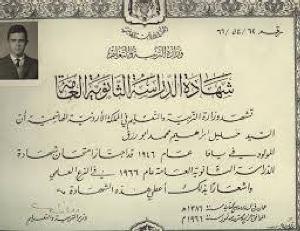 رقم ٦٢ / ٥٤ / ٦٦
وزارة التربية والتعليم
شهادة الدراسة الثانوية العامة
تشهد وزارة التربية والتعليم في المملكة الأردنية الهاشمية أن
السيد خليل ابراهيم محمد ابو رزق
المولود في يافا عام ١٩٤٦ قد اجتاز امتحان شهادة
الدراسة الثانوية العامة عام ١٩٦٦ في الفرع العلمي
واشعارا بذلك أعطي هذه الشهادة
عمان في
١٣٨٦ هـ
الموافق
١٩٦٦ م
وزير التربية والتعليم